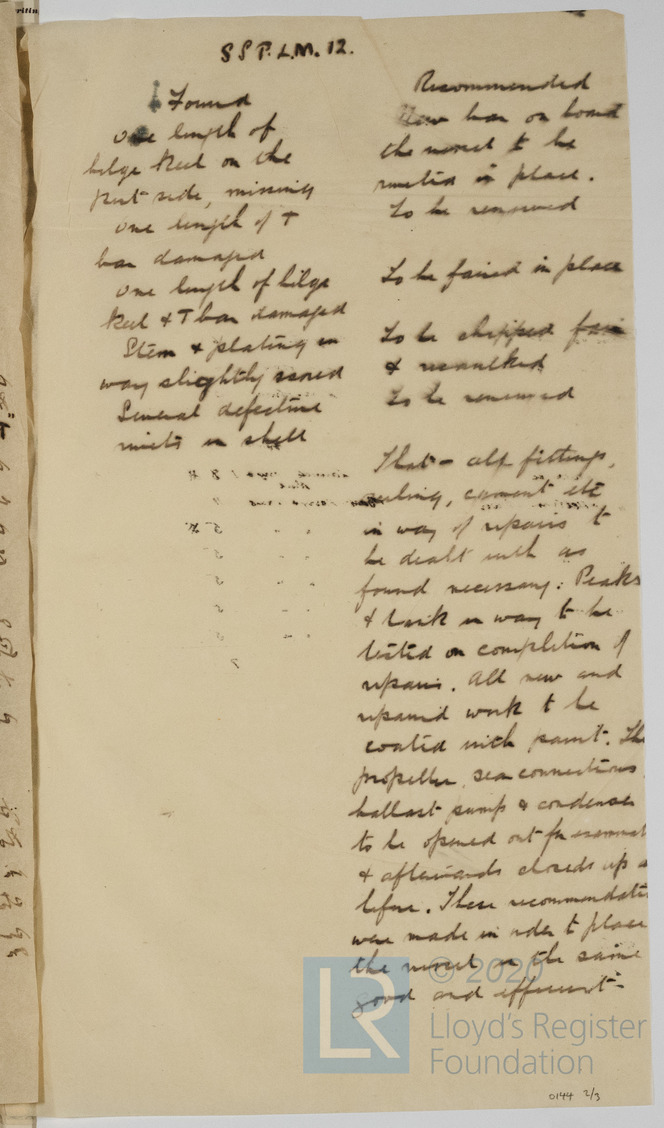 SSP.L.M. 12.
Found
one length of
bilge keel on the
port side, missing
one length of T
bar damaged
one length of bilge
keel & T bar damaged
Stem & plating in
way slightly scored
Several defective
rivets in shell
Recommended
New bar on board
the vessel to be
riveted in place.
To be renewed
To be faired in place
To be chipped fair
& recaulked
To be renewed
That - all fittings,
ceiling, cement etc
in way of repairs to
be dealt with as
found necessary: Peaks
& tank in way to be
tested on completion of
repairs. All new and
repaired work to be
coated with paint. The
propeller, sea connections
ballast pump & condenser
to be opened out for examinat
& afterwards closed up as
before. These recommendatio
were made in order to place
the vessel in the same
good and efficient -
© 2020
LR
Lloyd's Register
Foundation
0144 2/3